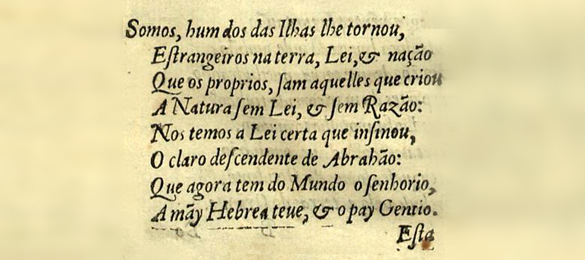 Somos, hum dos das Ilhas lhe tornou,
Eſtrangeiros na terra, Lei, & nação
Que os proprios, ſam aquelles que criou
A Natura ſem Lei, & ſem Razão:
Nos temos a Lei certa que inſinou,
O claro deſcendente de Abrahão:
Que agora tem do Mundo o ſenhorio,
A mãy Hebrea teue, & o pay Gentio.
Eſta